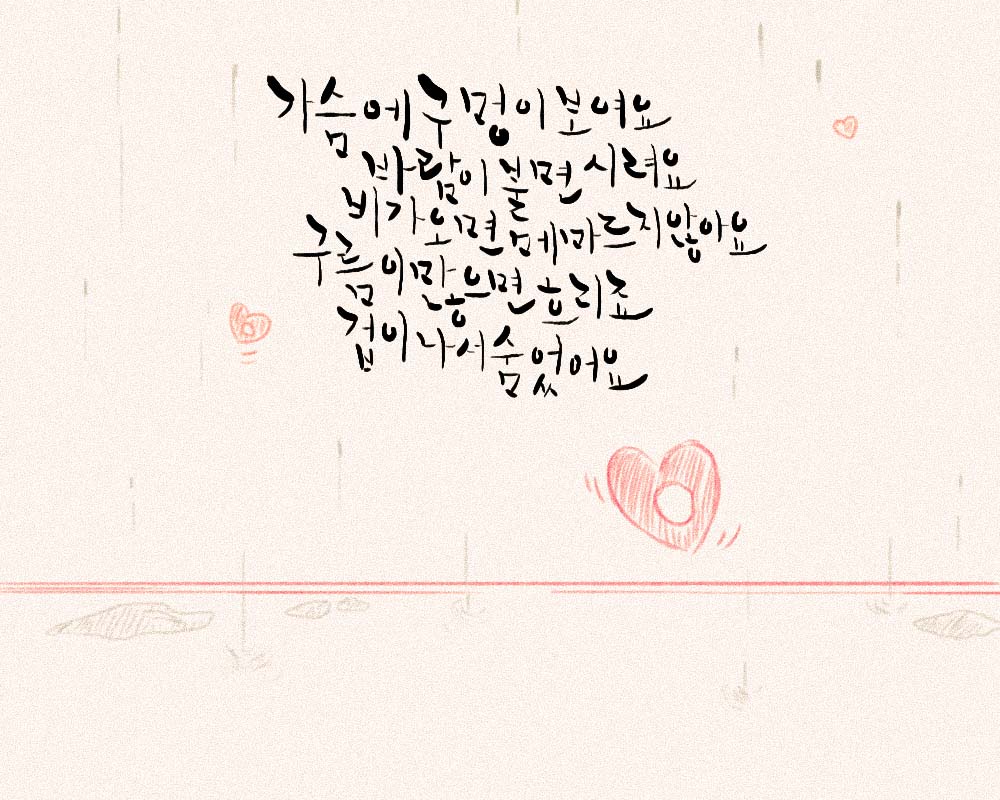 가슴에 구멍이 보여요
바람이 불면 시려요
비가 오면 메마르지 않아요
구름이 많으면 흐리죠
겁이 나서 숨었어요